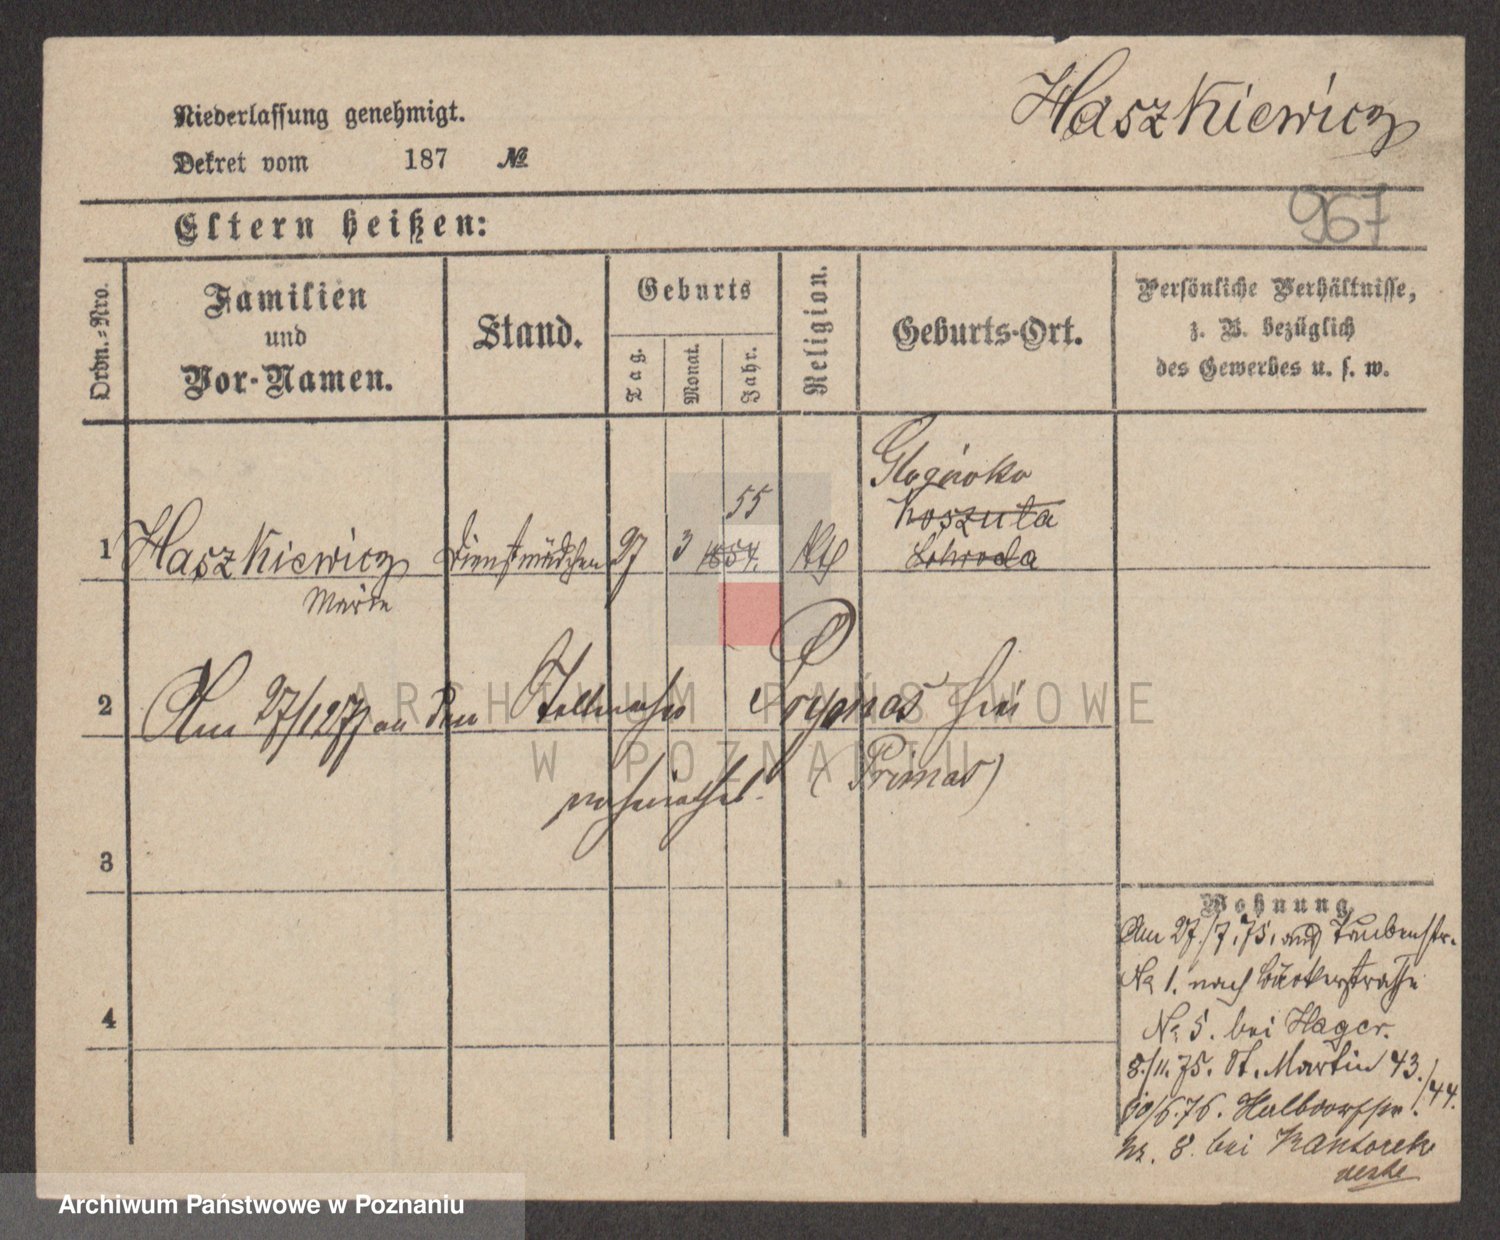 Haszkiewicz
Niederlassung genehmigt.
Dekret vom 187 №
967
Eltern heißen:
Ordn.-Nro.
Familien
und
Vor-Namen.
Stand.
Geburts
Tag.
Monat.
Jahr.
Religion.
Geburts-Ort.
Persönliche Verhältnisse,
z. B. bezüglich
des Gewerbes u. s. w.
55
Koszuta
Schroda
1 Haszkiewicz Dienstmädchen 27 3 1854. kth
Marie
2 Am 27/1 877 an den Stellmacher Prymas hier
verheirathet. (Primas)
3
4
Wohnung.
Am 27./7. 75. aus Taubenstr.
No 1. nach Bäckerstrasse
No 5. bei Hager.
8./11. 75. St. Martin 43./44.
10/6. 76. Halbdorfstr.
Nr. 8. bei Kantorek
ARCHIWUM PAŃSTWOWE
W POZNANIU
Archiwum Państwowe w Poznaniu